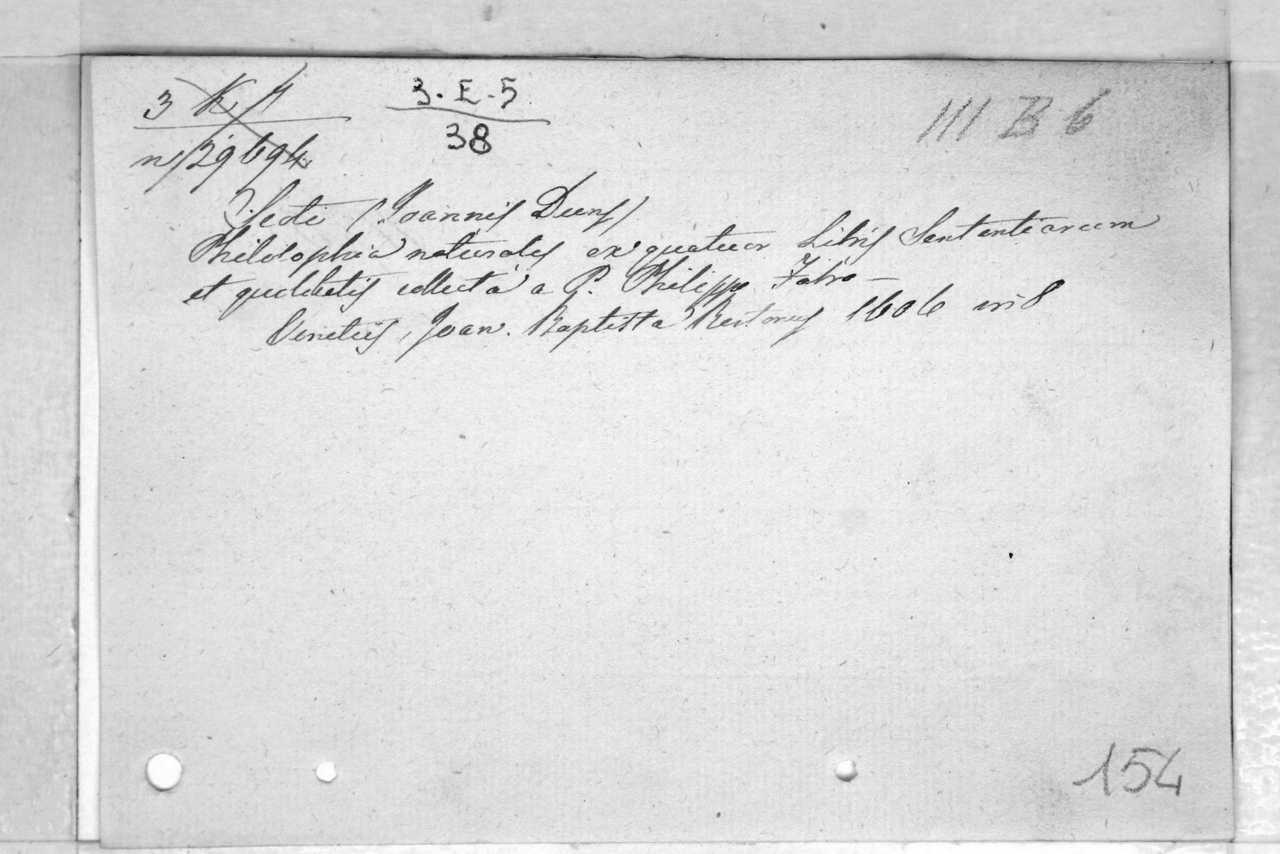 3 K A 3. E. 5 III B 6
n 29694 38
Scoti (Joannis Duns)
Philosophia naturalis ex quatuor Libris Sententiarum
et quodlibetis collecta a P. Philippo Fabro -
Venetiis, Joan. Baptista 1606 in 8
154